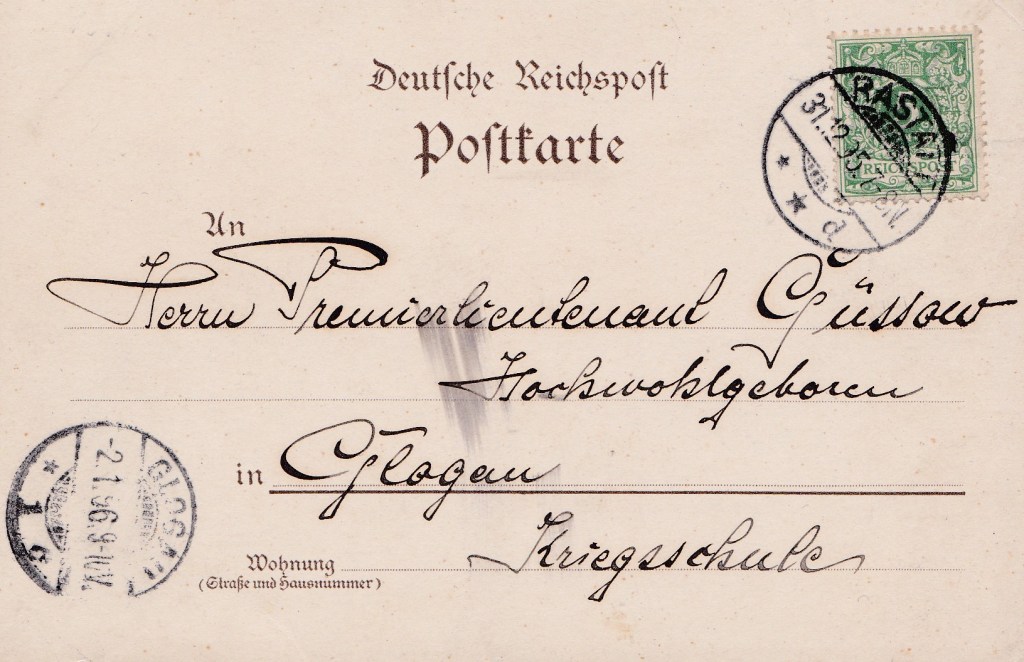 Deutsche Reichspost
Postkarte
RASTATT
31.12.95.7-8N.
* * d
REICHSPOST
An
Herrn Premierlieutenant Güssow
Hochwohlgeboren
in Glogau
Kriegsschule
Wohnung
(Straße und Hausnummer)
GLOGAU
-2.1.96.9-10V.
* 1 c